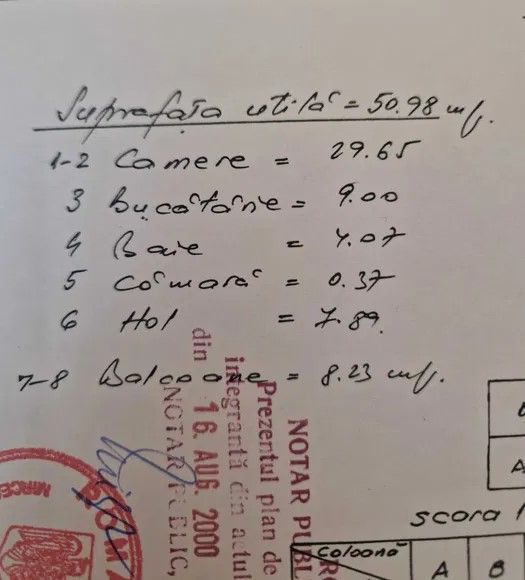 Suprafața utilă = 50.98 mp.
1-2 Camere = 29.65
3 Bucătărie = 9.00
4 Baie = 4.07
5 Cămară = 0.37
6 Hol = 7.89
7-8 Balcoane = 8.23 mp.
NOTAR PUBL
Prezentul plan de
integrantă din actul
din 16. AUG. 2000
NOTAR PUBLIC,
MIRCE
scora 1
Coloană
A
B
A